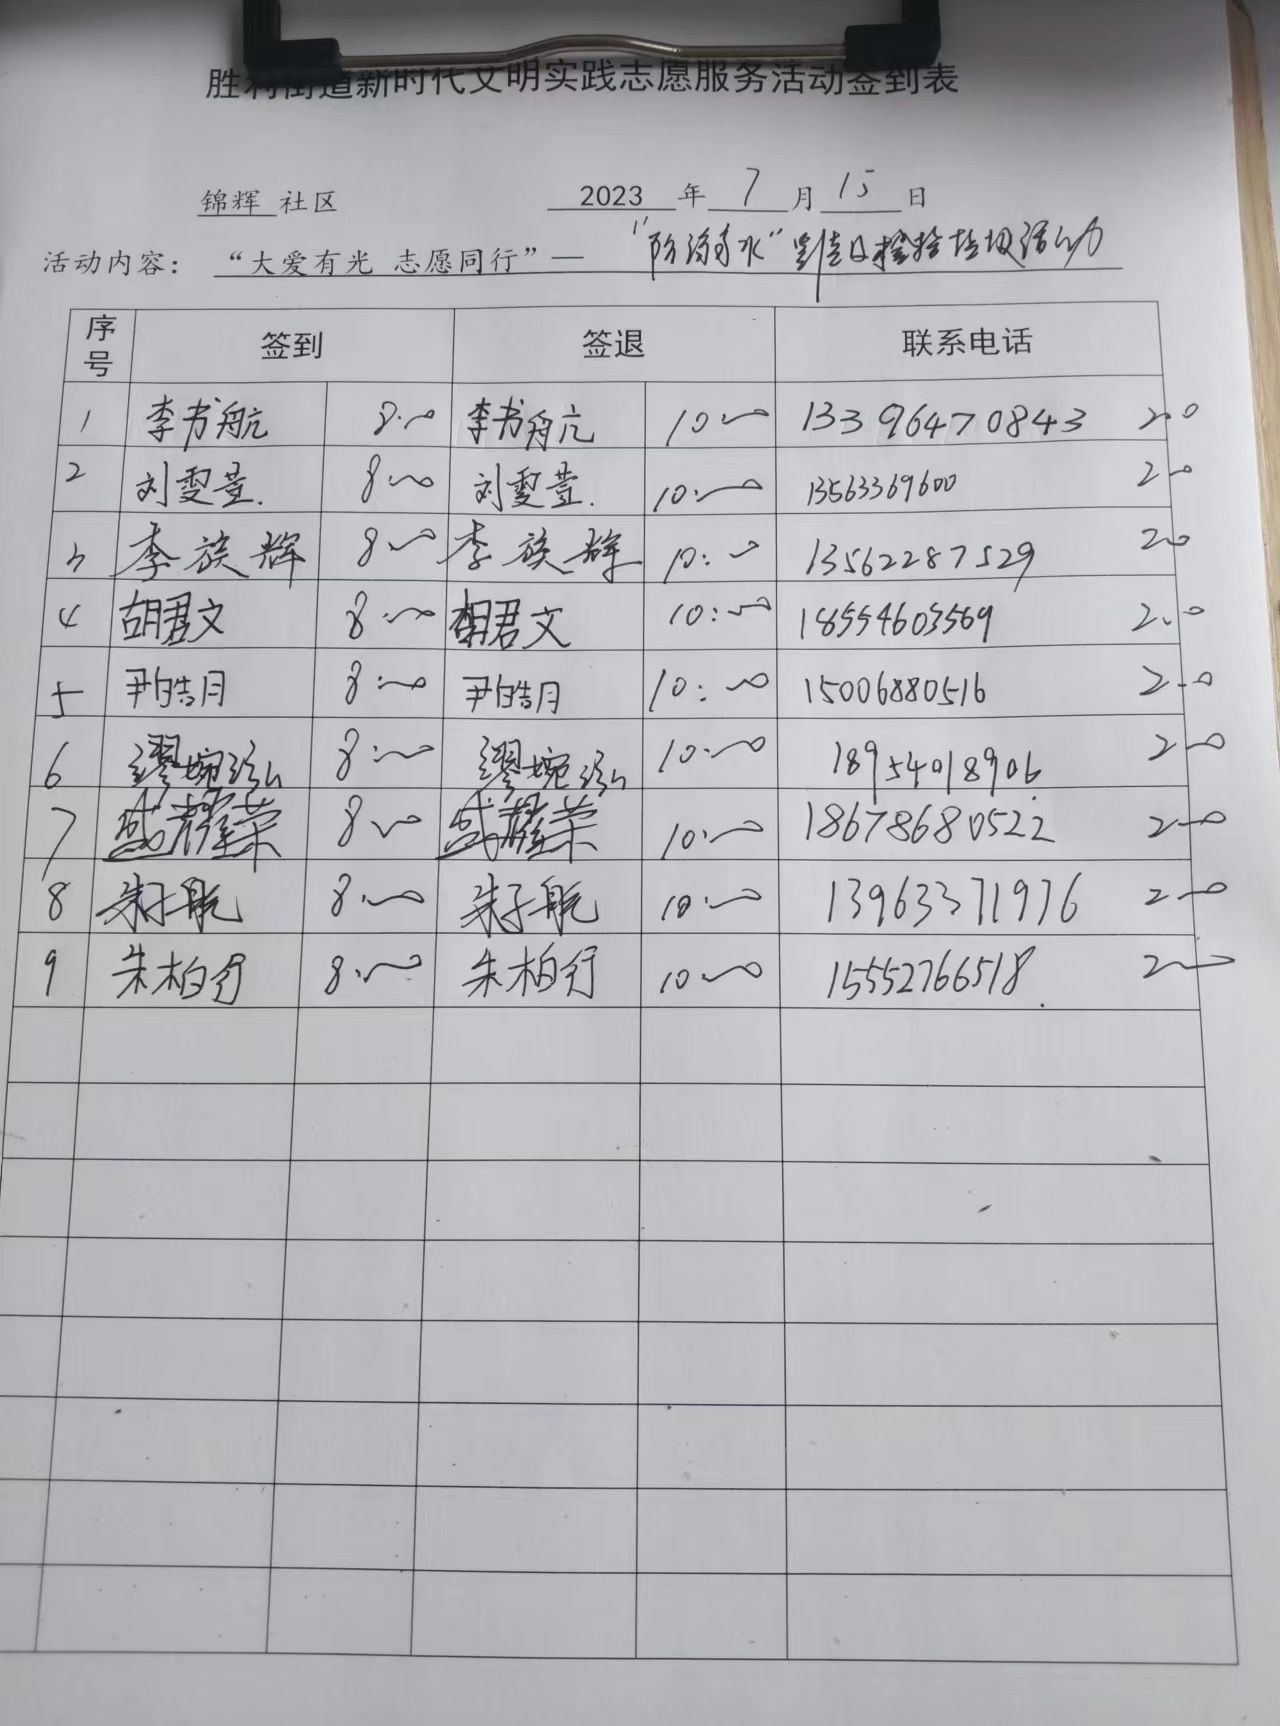 胜利街道新时代文明实践志愿服务活动签到表
锦辉 社区 2023 年 7 月 15 日
活动内容： “大爱有光 志愿同行”— “防溺水” 捡拾垃圾活动
序号 签到 签退 联系电话
1 李书航 8:00 李书航 10:00 13396470843 2.0
2 刘雯萱. 8:00 刘雯萱. 10:00 13563369600 2.0
3 李族辉 8:00 李族辉 10:00 13562287529 2.0
4 胡君文 8:00 胡君文 10:00 18554603569 2.0
5 尹皓月 8:00 尹皓月 10:00 15006880516 2.0
6 缪婉泓 8:00 缪婉泓 10:00 18954018906 2.0
7 盛耀荣 8:00 盛耀荣 10:00 18678680522 2.0
8 朱子航 8:00 朱子航 10:00 13963371976 2.0
9 朱柏行 8:00 朱柏行 10:00 15552766518 2.0